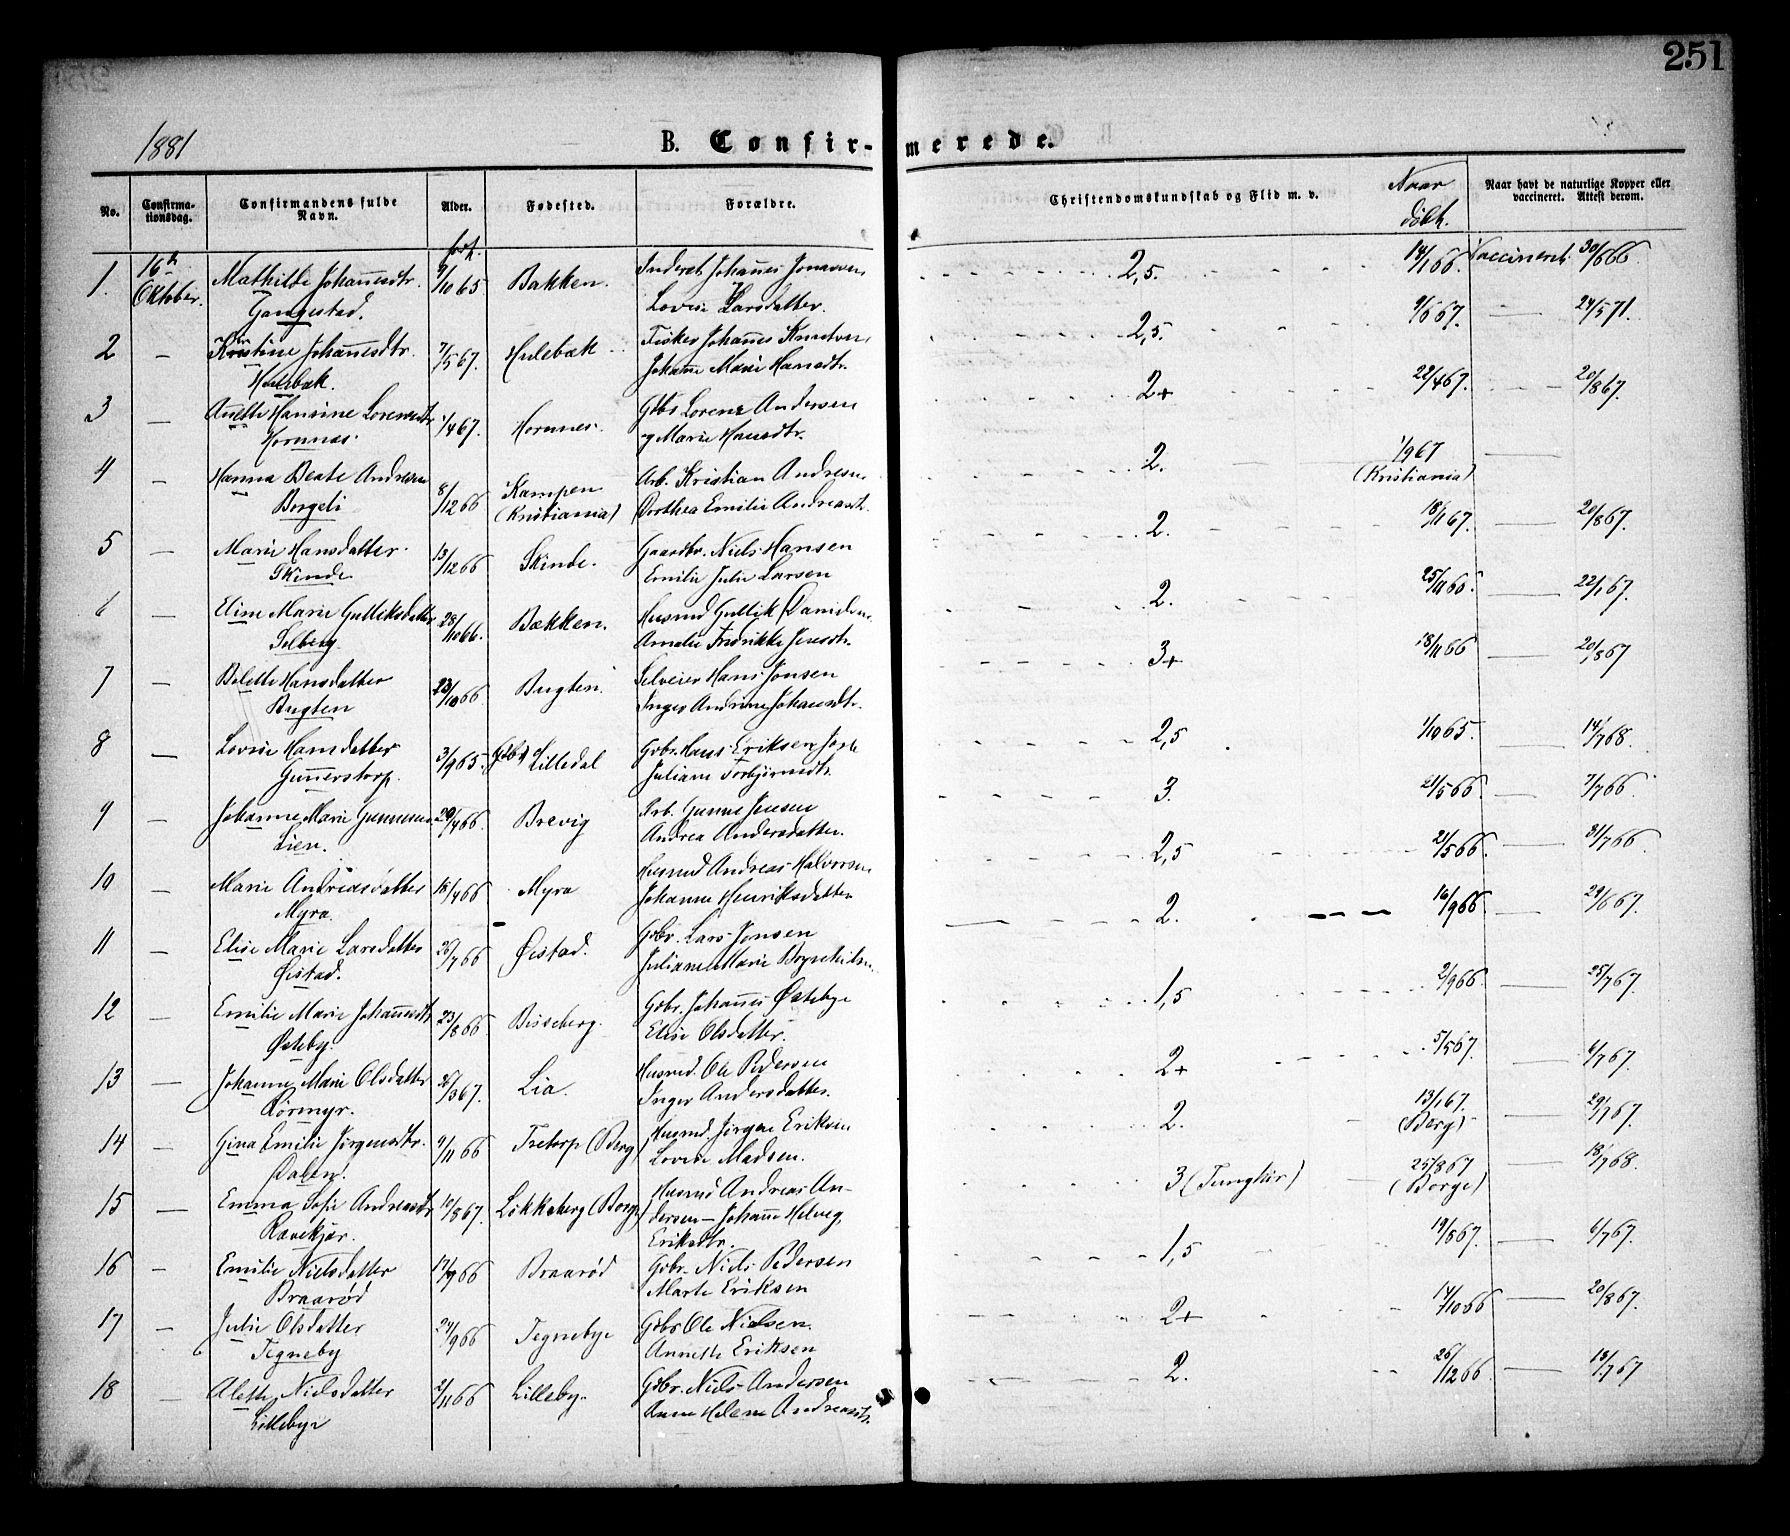 251
1881
B. Confir- merede.
No. Confirma-tionsdag. Confirmandens fulde Navn. Alder. Fødested. Forældre. Christendomskundskab og Flid m. v. Naar døbt. Naar havt de naturlige Kopper eller vaccineret. Attest derom.
født.
1. 16de Oktober. Mathilde Johannesdtr. 9/10 65 Bakken. Inderst Johannes Jonassen 2,5. 14/1 66. Vaccineret 30/6 66.
Gangestad. Lovise Larsdatter.
2 — Kristine Johannesdtr. 7/5 67. Hulebæk Fisker Johannes Knutsen 2,5. 9/6 67. — 24/5 71.
Hulebæk. Johanne Marie Hansdtr.
3 — Anette Hansine Lorensdtr 1/4 67. Hornnes. Gbr. Lorens Andersen 2+ 22/4 67. — 20/8 67.
Hornnes. og Marie Hansdtr.
4 — Hanna Beate Andresen 8/12 66 Kampen Arb. Kristian Andresen 2. 1/9 67 —
Borgeli (Kristiania) Dorthea Emilie Andreasdtr. (Kristiania)
5 — Marie Hansdatter 13/12 66 Skinde. Gaardbr. Niels Hansen 2. 18/1 67. — 20/8 67.
Skinde Emilie Julie Larsen
6 — Eline Marie Gulliksdatter 28/10 66. Bakken. Husmd Gullik Danielsen 2. 25/11 66. — 22/1 67.
Solberg. Amalie Fredrikke Jensdtr.
7 — Bolette Hansdatter 23/10 66 Bugten. Selveier Hans Jonsen 3+ 18/11 66 — 20/8 67
Bugten Inger Andrine Johansdtr.
8 — Lovise Hansdatter 3/9 65. Lilledal Gbr. Hans Eriksen 2,5 1/10 65. — 14/7 68.
Gunnerstorp. Juliane Torbjørnsdtr.
9 — Johanne Marie Gunnesen 20/4 66. Brevig Arb. Gunne Jensen 3. 21/5 66. — 7/7 66.
Lien. Andrea Andersdatter.
10 — Marie Andreasdatter 15/4 66 Myra Husmd Andreas Halvorsen 2,5 21/5 66. — 31/7 66
Myra. Johanne Henriksdatter
11 — Elise Marie Larsdatter 26/7 66 Øistad. Gbr. Lars Jensen 2. 16/9 66. — 29/6 67.
Øistad. Juliane Marie
12 — Emilie Marie Johannesdtr 23/8 66 Bisseberg. Gbr. Johannes Østebye 1,5 2/9 66 — 25/7 67.
Østeby. Elise Olsdatter.
13 — Johanne Marie Olsdatter 26/3 67. Lia. Husmd. Ole Pedersen 2+ 5/5 67. — 6/7 67.
Rörmyr. Inger Andersdatter.
14 — Gina Emilie Jörgensdtr. 9/11 66 Tretorp (Berg) Husmd. Jörgen Eriksen 2. 13/1 67. — 29/7 67.
Dalen. Lovise Madsen. (Berg)
15 — Emma Sofie Andreasdtr 12/8 67. Lökkeberg (Borge) Husmd Andreas An- 3 (Tunghör) 25/8 67 — 18/7 68.
Ravekjær. dersen — Johanne Helveg (Borge)
Eriksdtr.
16 — Emilie Nielsdatter 17/7 66 Braarød Gbr. Niels Pedersen 1,5 19/8 67. — 6/7 67.
Braarød Marte Eriksen
17 — Julie Olsdatter 24/9 66 Tegnebye Gbr Ole Nielsen. 2+ 14/10 66 — 20/8 67.
Tegneby Annette Eriksen
18 — Alette Nielsdatter 2/11 66 Lilleby. Gbr. Niels Andersen 2. 26/12 66 — 18/7 67
Lillebye Anne Helene Andreasdtr.